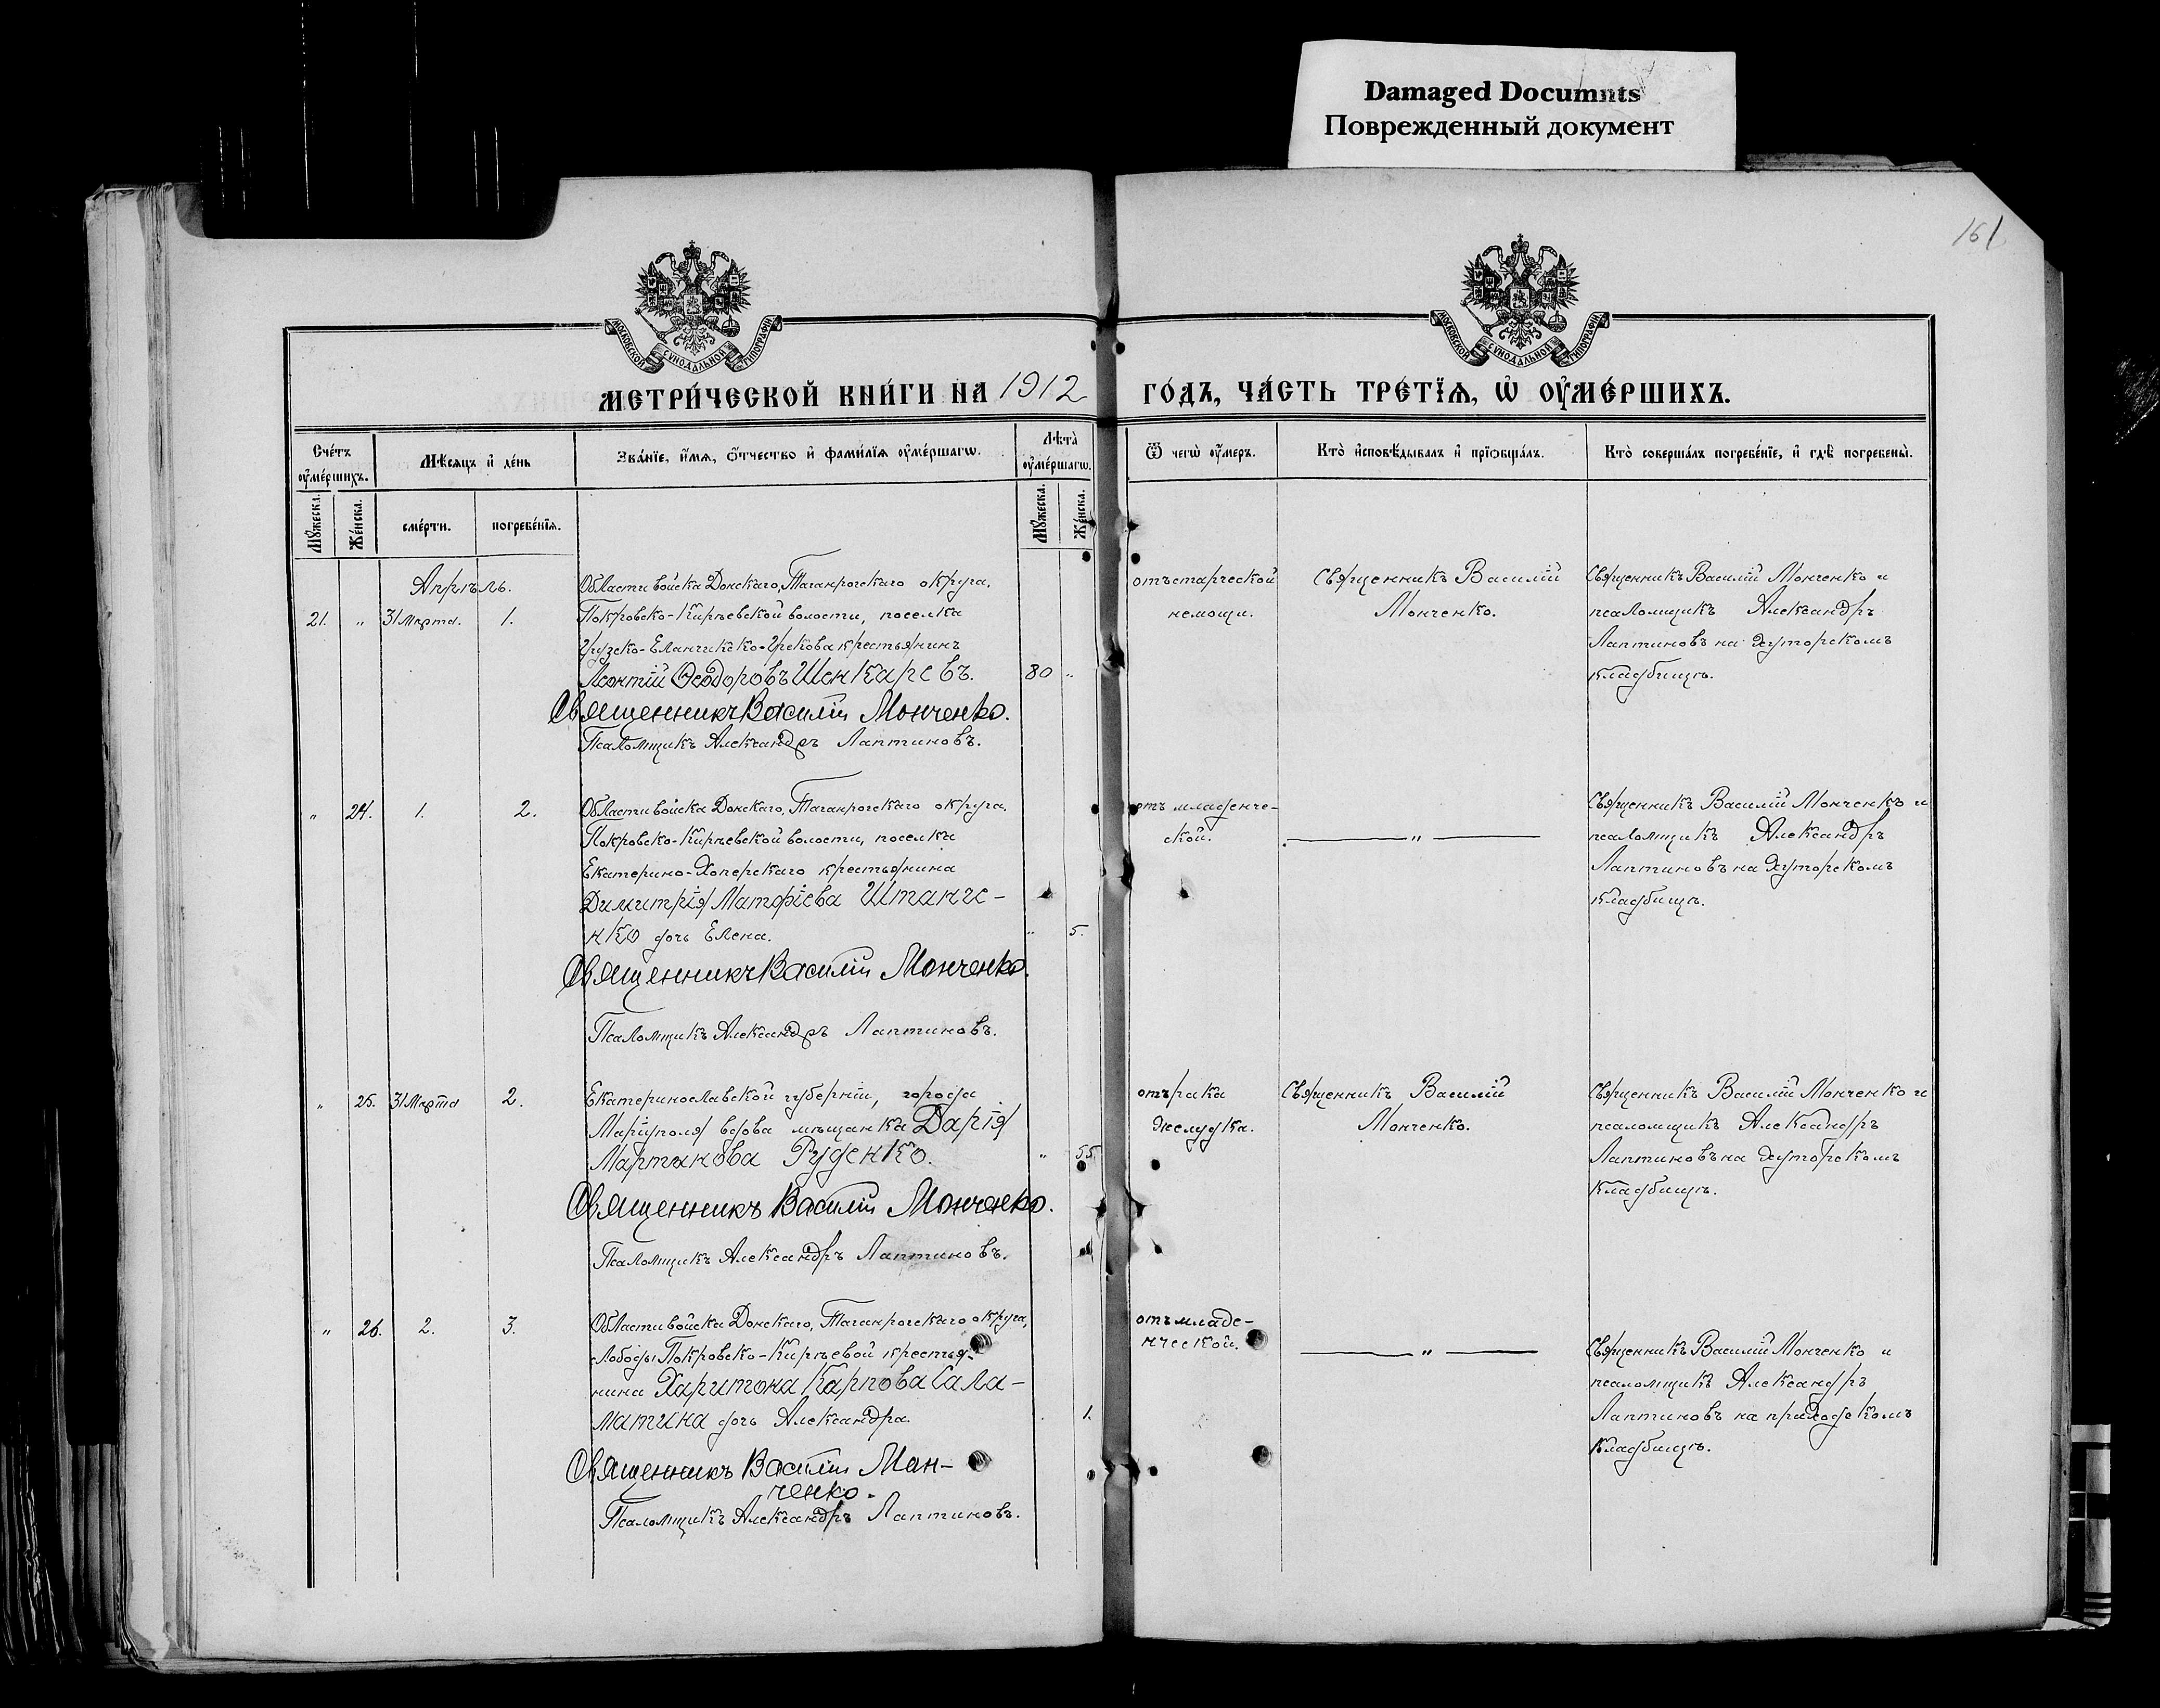 Damaged Documnts
Поврежденный документ
161
МОСКОВСКОЙ СѴНОДАЛЬНОЙ ТИПОГРАФІИ
МОСКОВСКОЙ СѴНОДАЛЬНОЙ ТИПОГРАФІИ
МЕТРИ́ЧЕСКОЙ КНИ́ГИ НА 1912 ГО́ДЪ, ЧА́СТЬ ТРЕ́ТЇѦ, Ѡ҆ ОУ҆МЕ́РШИХЪ.
Сче́тъ оу҆ме́ршихъ.
Мѣ́сѧцъ и҆ де́нь
Зва́нїе, и҆́мѧ, ѻ҆́тчество и҆ фами́лїѧ оу҆ме́ршагѡ.
Лѣ́та оу҆ме́ршагѡ.
Ѿ чегѡ̀ оу҆́меръ.
Кто̀ и҆сповѣ́дывалъ и҆ прїѡбща́лъ.
Кто̀ соверша́лъ погребе́нїе, и҆ гдѣ̀ погребены̀.
Мꙋ́жеска.
Же́нска.
сме́рти.
погребе́нїѧ.
Мꙋ́жеска.
Же́нска.
Апрѣль.
21. " 31 Марта. 1.
Области войска Донскаго, Таганрогскаго округа,
Покровско-Кирѣевской волости, поселка
Грузско-Еланчикско-Грекова крестьянинъ
Леонтій Ѳеодоровъ Шенкаревъ. 80 "
Священникъ Василій Монченко.
Псаломщикъ Александръ Лаптиновъ.
отъ старческой
немощи.
Священникъ Василій
Монченко.
Священникъ Василій Монченко и
псаломщикъ Александръ
Лаптиновъ на хуторскомъ
кладбищѣ.
" 24. 1. 2.
Области войска Донскаго, Таганрогскаго округа,
Покровско-Кирѣевской волости, поселка
Екатерино-Хоперскаго крестьянина
Димитрія Матфіева Штанче-
нко дочь Елена. " 5.
Священникъ Василій Монченко.
Псаломщикъ Александръ Лаптиновъ.
отъ младенче-
ской.
"
Священникъ Василій Монченко и
псаломщикъ Александръ
Лаптиновъ на хуторскомъ
кладбищѣ.
" 25. 31 Марта 2.
Екатеринославской губерніи, города
Маріуполя вдова мѣщанка Дарія
Мартинова Руденко. " 55
Священникъ Василій Монченко.
Псаломщикъ Александръ Лаптиновъ.
отъ рака
желудка.
Священникъ Василій
Монченко.
Священникъ Василій Монченко и
псаломщикъ Александръ
Лаптиновъ на хуторскомъ
кладбищѣ.
" 26. 2. 3.
Области войска Донскаго, Таганрогскаго округа,
слободы Покровско-Кирѣевой крестья-
нина Харитона Карпова Сала-
матина дочь Александра. 1.
Священникъ Василій Мон-
ченко.
Псаломщикъ Александръ Лаптиновъ.
отъ младе-
нческой.
"
Священникъ Василій Монченко и
псаломщикъ Александръ
Лаптиновъ на приходскомъ
кладбищѣ.